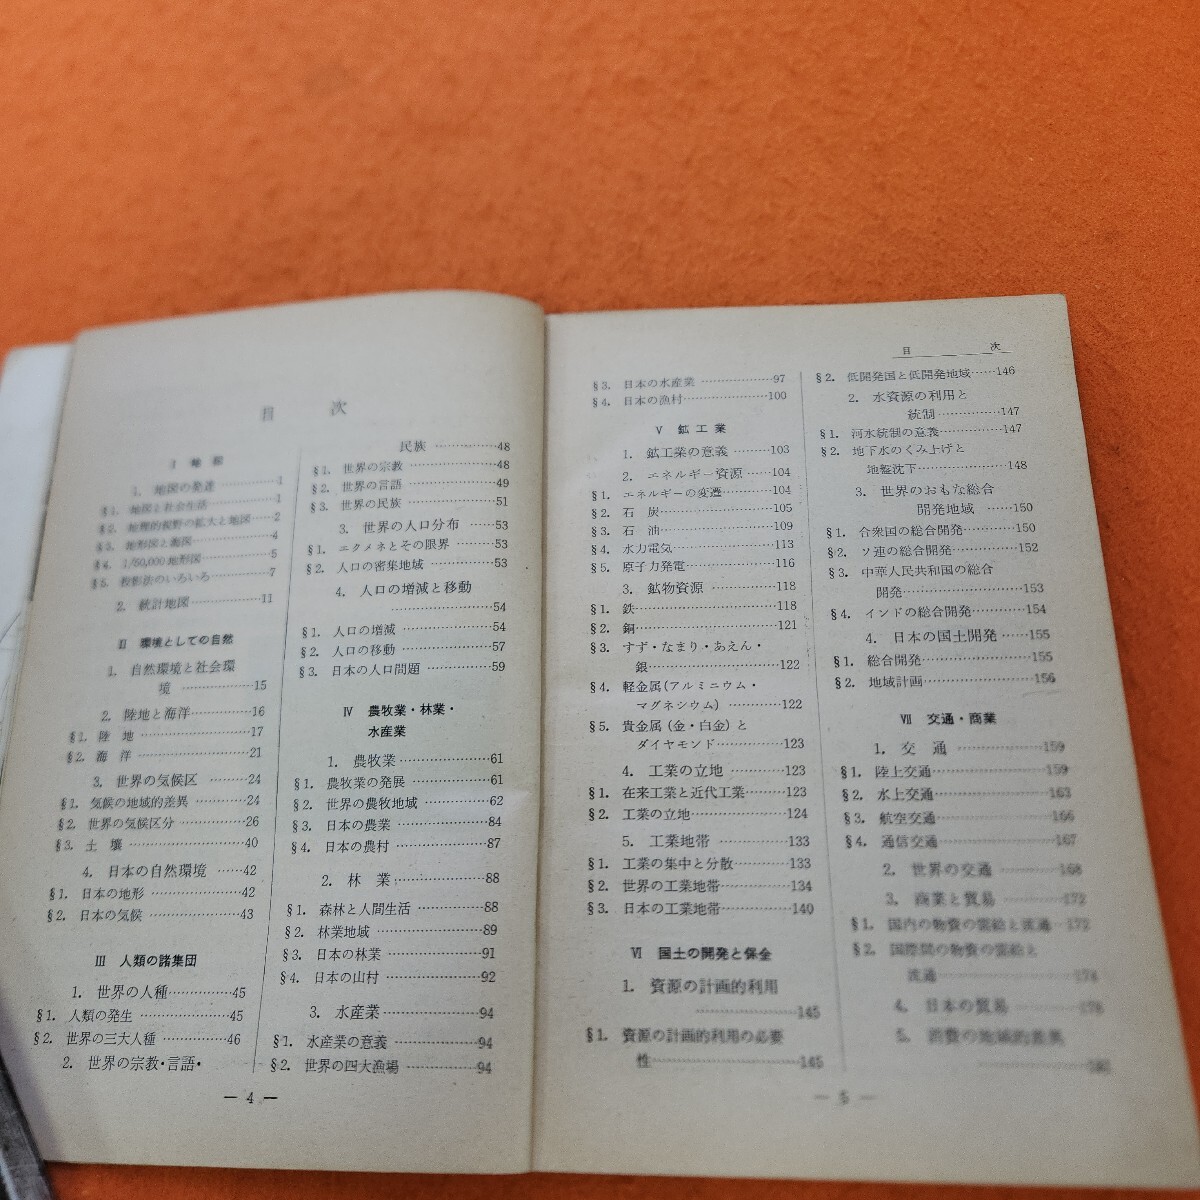 目　次
1. 地図の発達……1
§1. 地図と社会生活……1
§2. 地理的視野の拡大と地図……2
§3. 地形図と海図……4
§4. 1/50,000地形図……5
§5. 投影法のいろいろ……7
2. 統計地図……11
II 環境としての自然
1. 自然環境と社会環
境……15
2. 陸地と海洋……16
§1. 陸　地……17
§2. 海　洋……21
3. 世界の気候区……24
§1. 気候の地域的差異……24
§2. 世界の気候区分……26
§3. 土　壌……40
4. 日本の自然環境……42
§1. 日本の地形……42
§2. 日本の気候……43
III 人類の諸集団
1. 世界の人種……45
§1. 人類の発生……45
§2. 世界の三大人種……46
2. 世界の宗教・言語・
民族……48
§1. 世界の宗教……48
§2. 世界の言語……49
§3. 世界の民族……51
3. 世界の人口分布……53
§1. エクメネとその限界……53
§2. 人口の密集地域……53
4. 人口の増減と移動
……54
§1. 人口の増減……54
§2. 人口の移動……57
§3. 日本の人口問題……59
IV 農牧業・林業・
水産業
1. 農牧業……61
§1. 農牧業の発展……61
§2. 世界の農牧地域……62
§3. 日本の農業……84
§4. 日本の農村……87
2. 林　業……88
§1. 森林と人間生活……88
§2. 林業地域……89
§3. 日本の林業……91
§4. 日本の山村……92
3. 水産業……94
§1. 水産業の意義……94
§2. 世界の四大漁場……94
— 4 —
目　次
§3. 日本の水産業……97
§4. 日本の漁村……100
V 鉱工業
1. 鉱工業の意義……103
2. エネルギー資源……104
§1. エネルギーの変遷……104
§2. 石　炭……105
§3. 石　油……109
§4. 水力電気……113
§5. 原子力発電……116
3. 鉱物資源……118
§1. 鉄……118
§2. 銅……121
§3. すず・なまり・あえん・
銀……122
§4. 軽金属(アルミニウム・
マグネシウム)……122
§5. 貴金属(金・白金)と
ダイヤモンド……123
4. 工業の立地……123
§1. 在来工業と近代工業……123
§2. 工業の立地……124
5. 工業地帯……133
§1. 工業の集中と分散……133
§2. 世界の工業地帯……134
§3. 日本の工業地帯……140
VI 国土の開発と保全
1. 資源の計画的利用
……145
§1. 資源の計画的利用の必要
性……145
§2. 低開発国と低開発地域……146
2. 水資源の利用と
統制……147
§1. 河水統制の意義……147
§2. 地下水のくみ上げと
地盤沈下……148
3. 世界のおもな総合
開発地域……150
§1. 合衆国の総合開発……150
§2. ソ連の総合開発……152
§3. 中華人民共和国の総合
開発……153
§4. インドの総合開発……154
4. 日本の国土開発……155
§1. 総合開発……155
§2. 地域計画……156
VII 交通・商業
1. 交　通……159
§1. 陸上交通……159
§2. 水上交通……163
§3. 航空交通……166
§4. 通信交通……167
2. 世界の交通……168
3. 商業と貿易……172
§1. 国内の物資の需給と流通…172
§2. 国際間の物資の需給と
流通……174
4. 日本の貿易……178
5. 消費の地域的差異
— 5 —